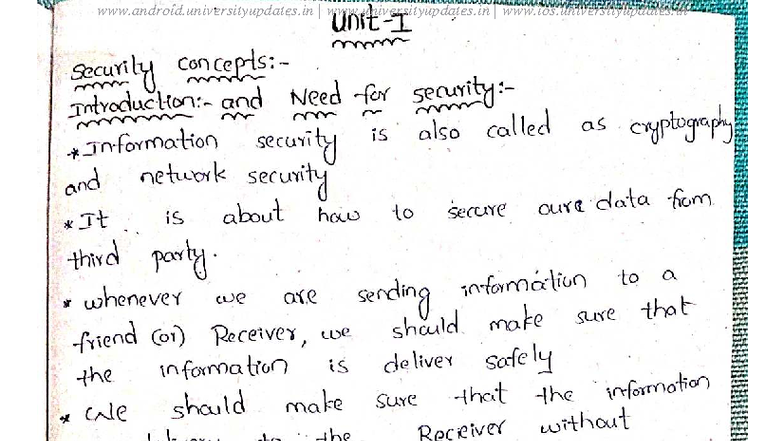 www.android.universityupdates.in | www.universityupdates.in | www.ios.universityupdates.in
Unit-I
Security concepts:-
Introduction:- and Need for security:-
*Information security is also called as cryptography
and network security
*It is about how to secure oure data from
third party.
* whenever we are sending information to a
friend (or) Receiver, we should make sure that
the information is deliver safely
* We should make sure that the information
to the Receiver without